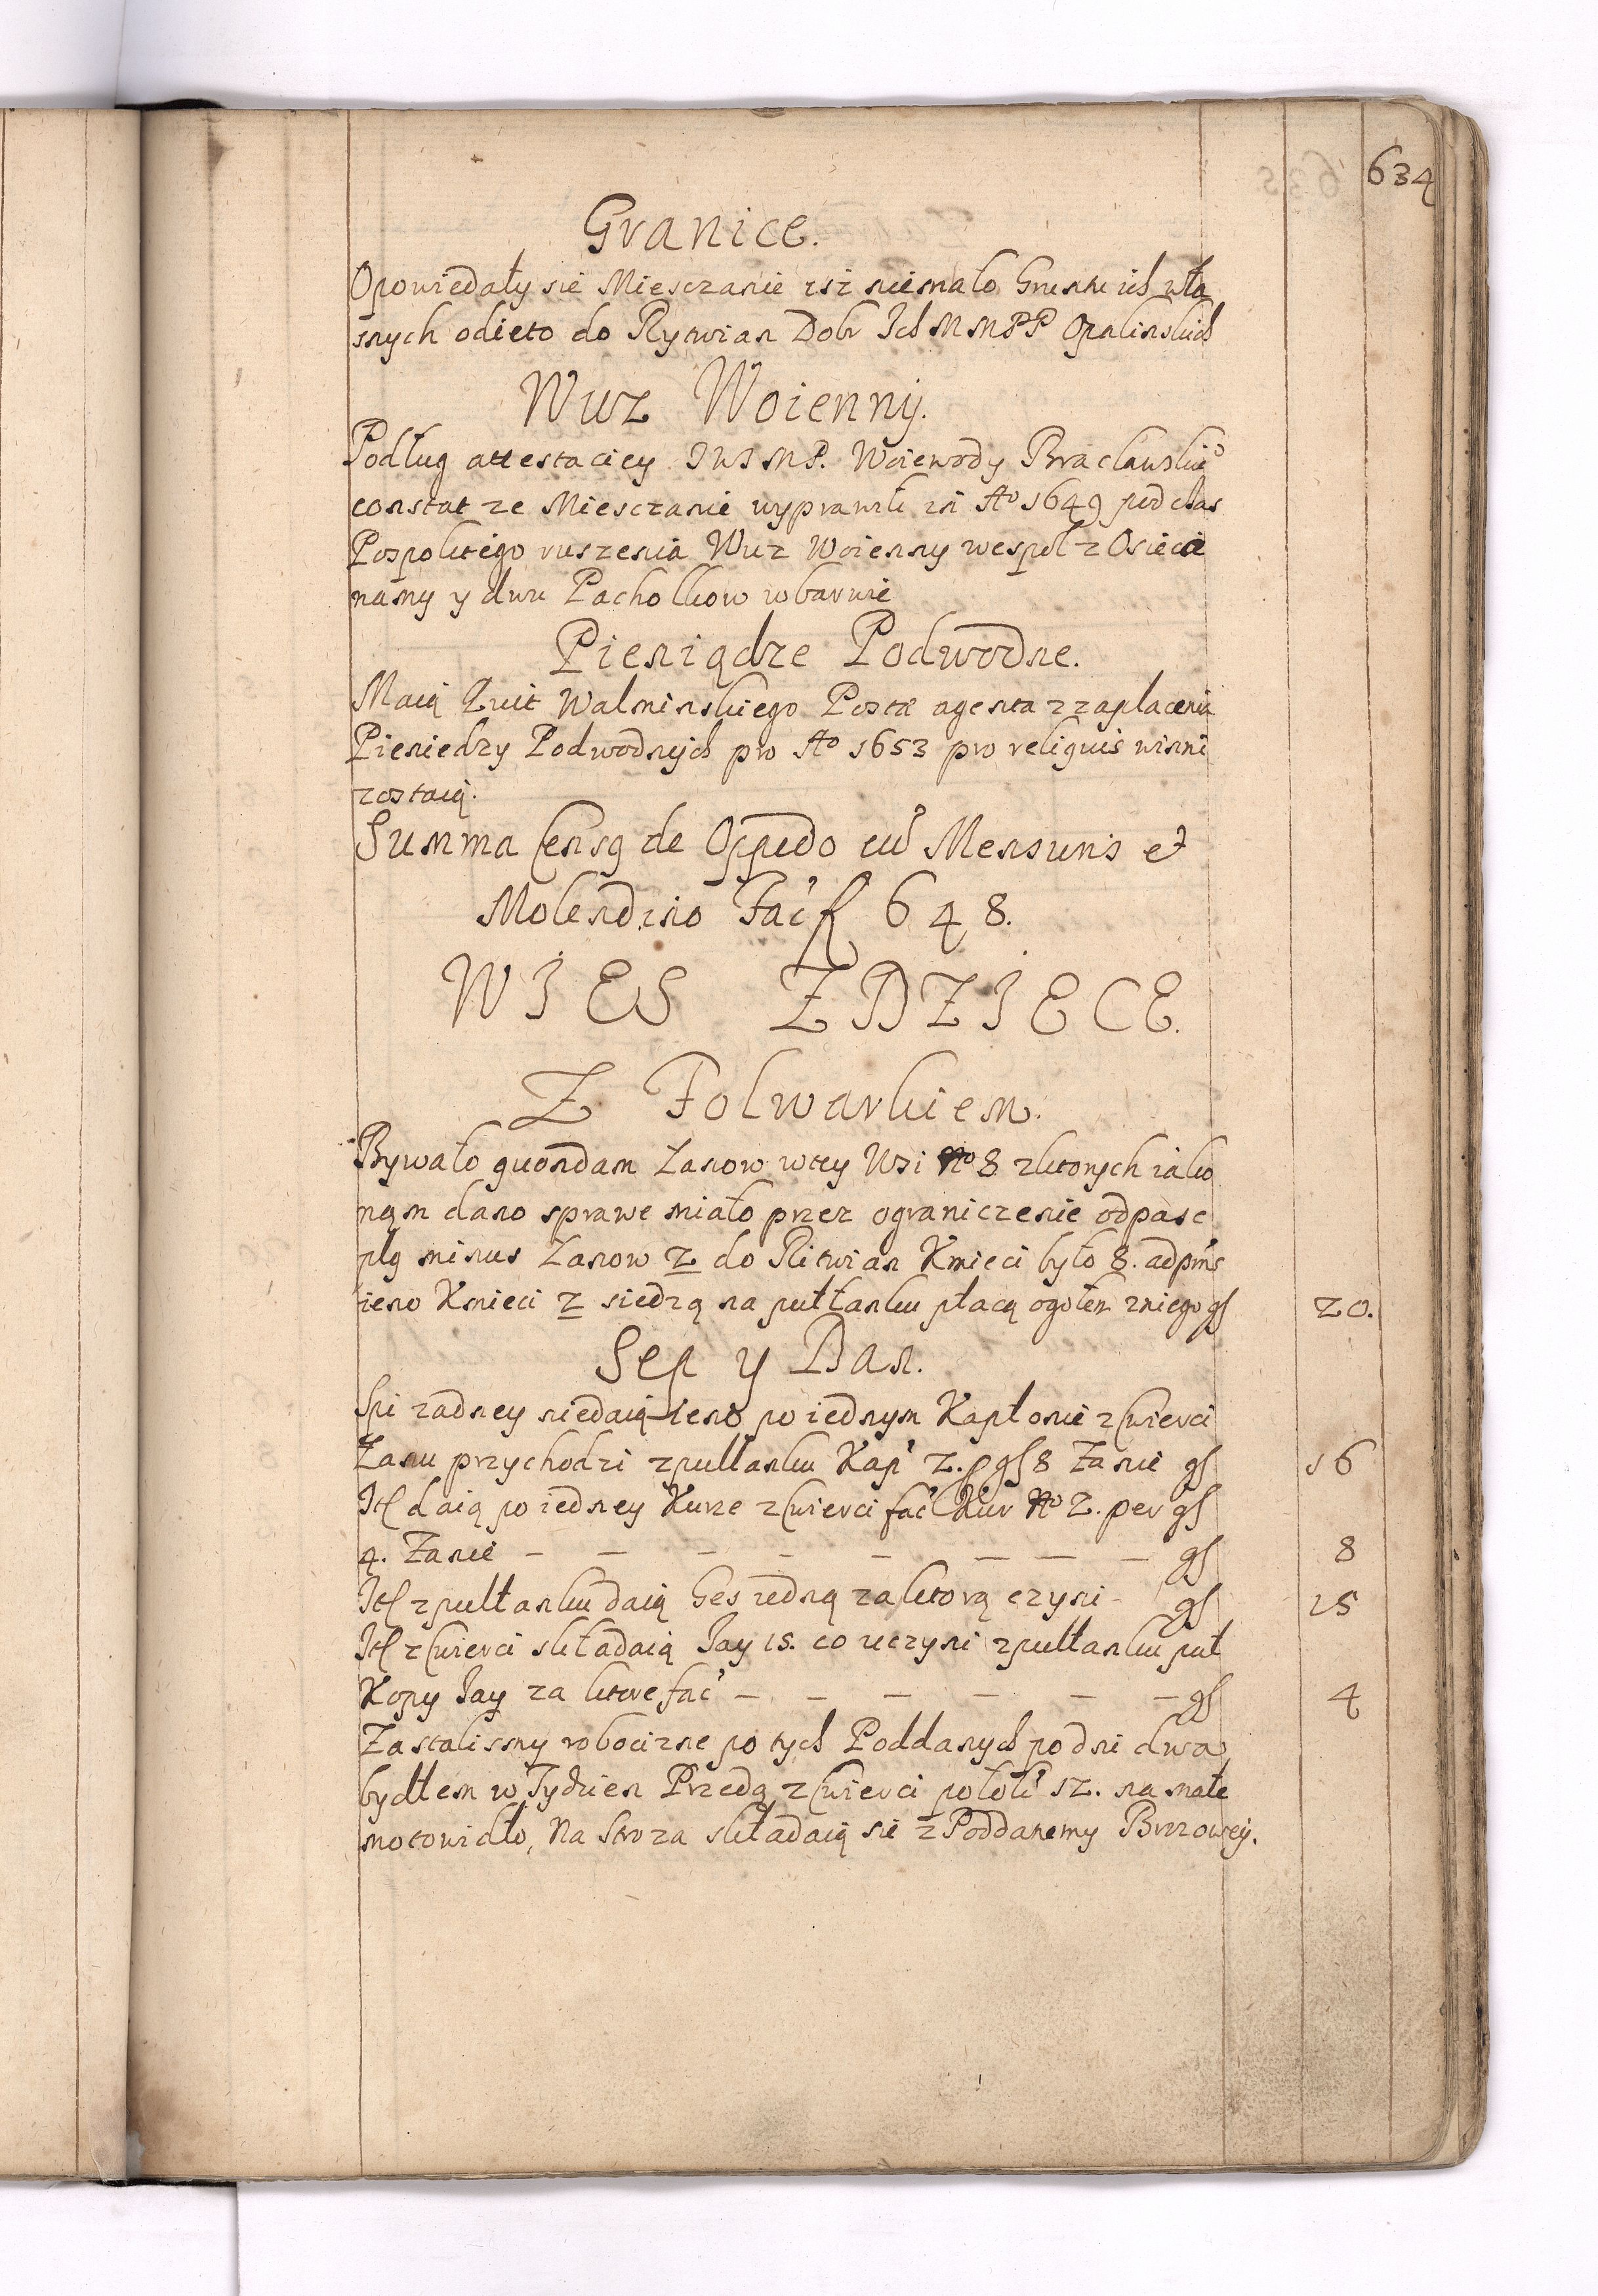 634
Granice.
Opowiedały sie Miesczanie isz niemało Gruntu ich wła
snych odieto do Rytwian Dobr Ich MMPP Opalinskich
Wuz Woienny.
Podług attestaciey JWJMP. Woiewody Bracławskie͠o
constat ze Miesczanie wyprawili in Ao 1649 pod czas
Pospolitego ruszenia Wuz Woienny wespoł z Osiecia
namy y dwu Pachołkow w barwie
Pieniądze Podwodne.
Maią Kwit Walminskiego Postæ agenta z zaplacenia
Pieniedzy Podwodnych pro Ao 1653 pro reliquis winni
zostaią.
Summa Censq de Oppido cu͠ Mensuris et
Molendino Fac' fl 648.
WIES ZDZIECE.
Z Folwarkiem.
Bywało quondam Łanow w tey Wsi No 8 z ktorych iako
nąm dano sprawe miało przez ograniczenie odpasc
plq minus Łanow 2 do Ritwian Kmieci było 8. ad pn̄s
ieno Kmieci 2 siedzą na pułłanku płacą ogołem z niego gſ 20.
Sep y Dan.
Spi zadney niedaią ieno po iednym Kapłonie z Cwierci
Łanu przychodzi z pułłanku Kap' 2. p gſ 8 Łanie gſ 16
Itſ daią po iedney Kurze z Cwierci fac' Kur No 2. per gſ
4. Łanie – – – – – – – – gſ 8
Itſ z pułłanku daią Ges iedną za ktorą czyni - gſ 15
Itſ z Cwierci składaią Jay 15. co uczyni z pułłanku puł
Kopy Jay za ktore fac' – – – – – – gſ 4
Zastalismy robocizne po tych Poddanych po dni dwa
bydłem w Tydzien Przedą z Cwierci po łok' 12. na małe
motowidło, Na Stroza składaią sie z Poddanemy Brzozowey.